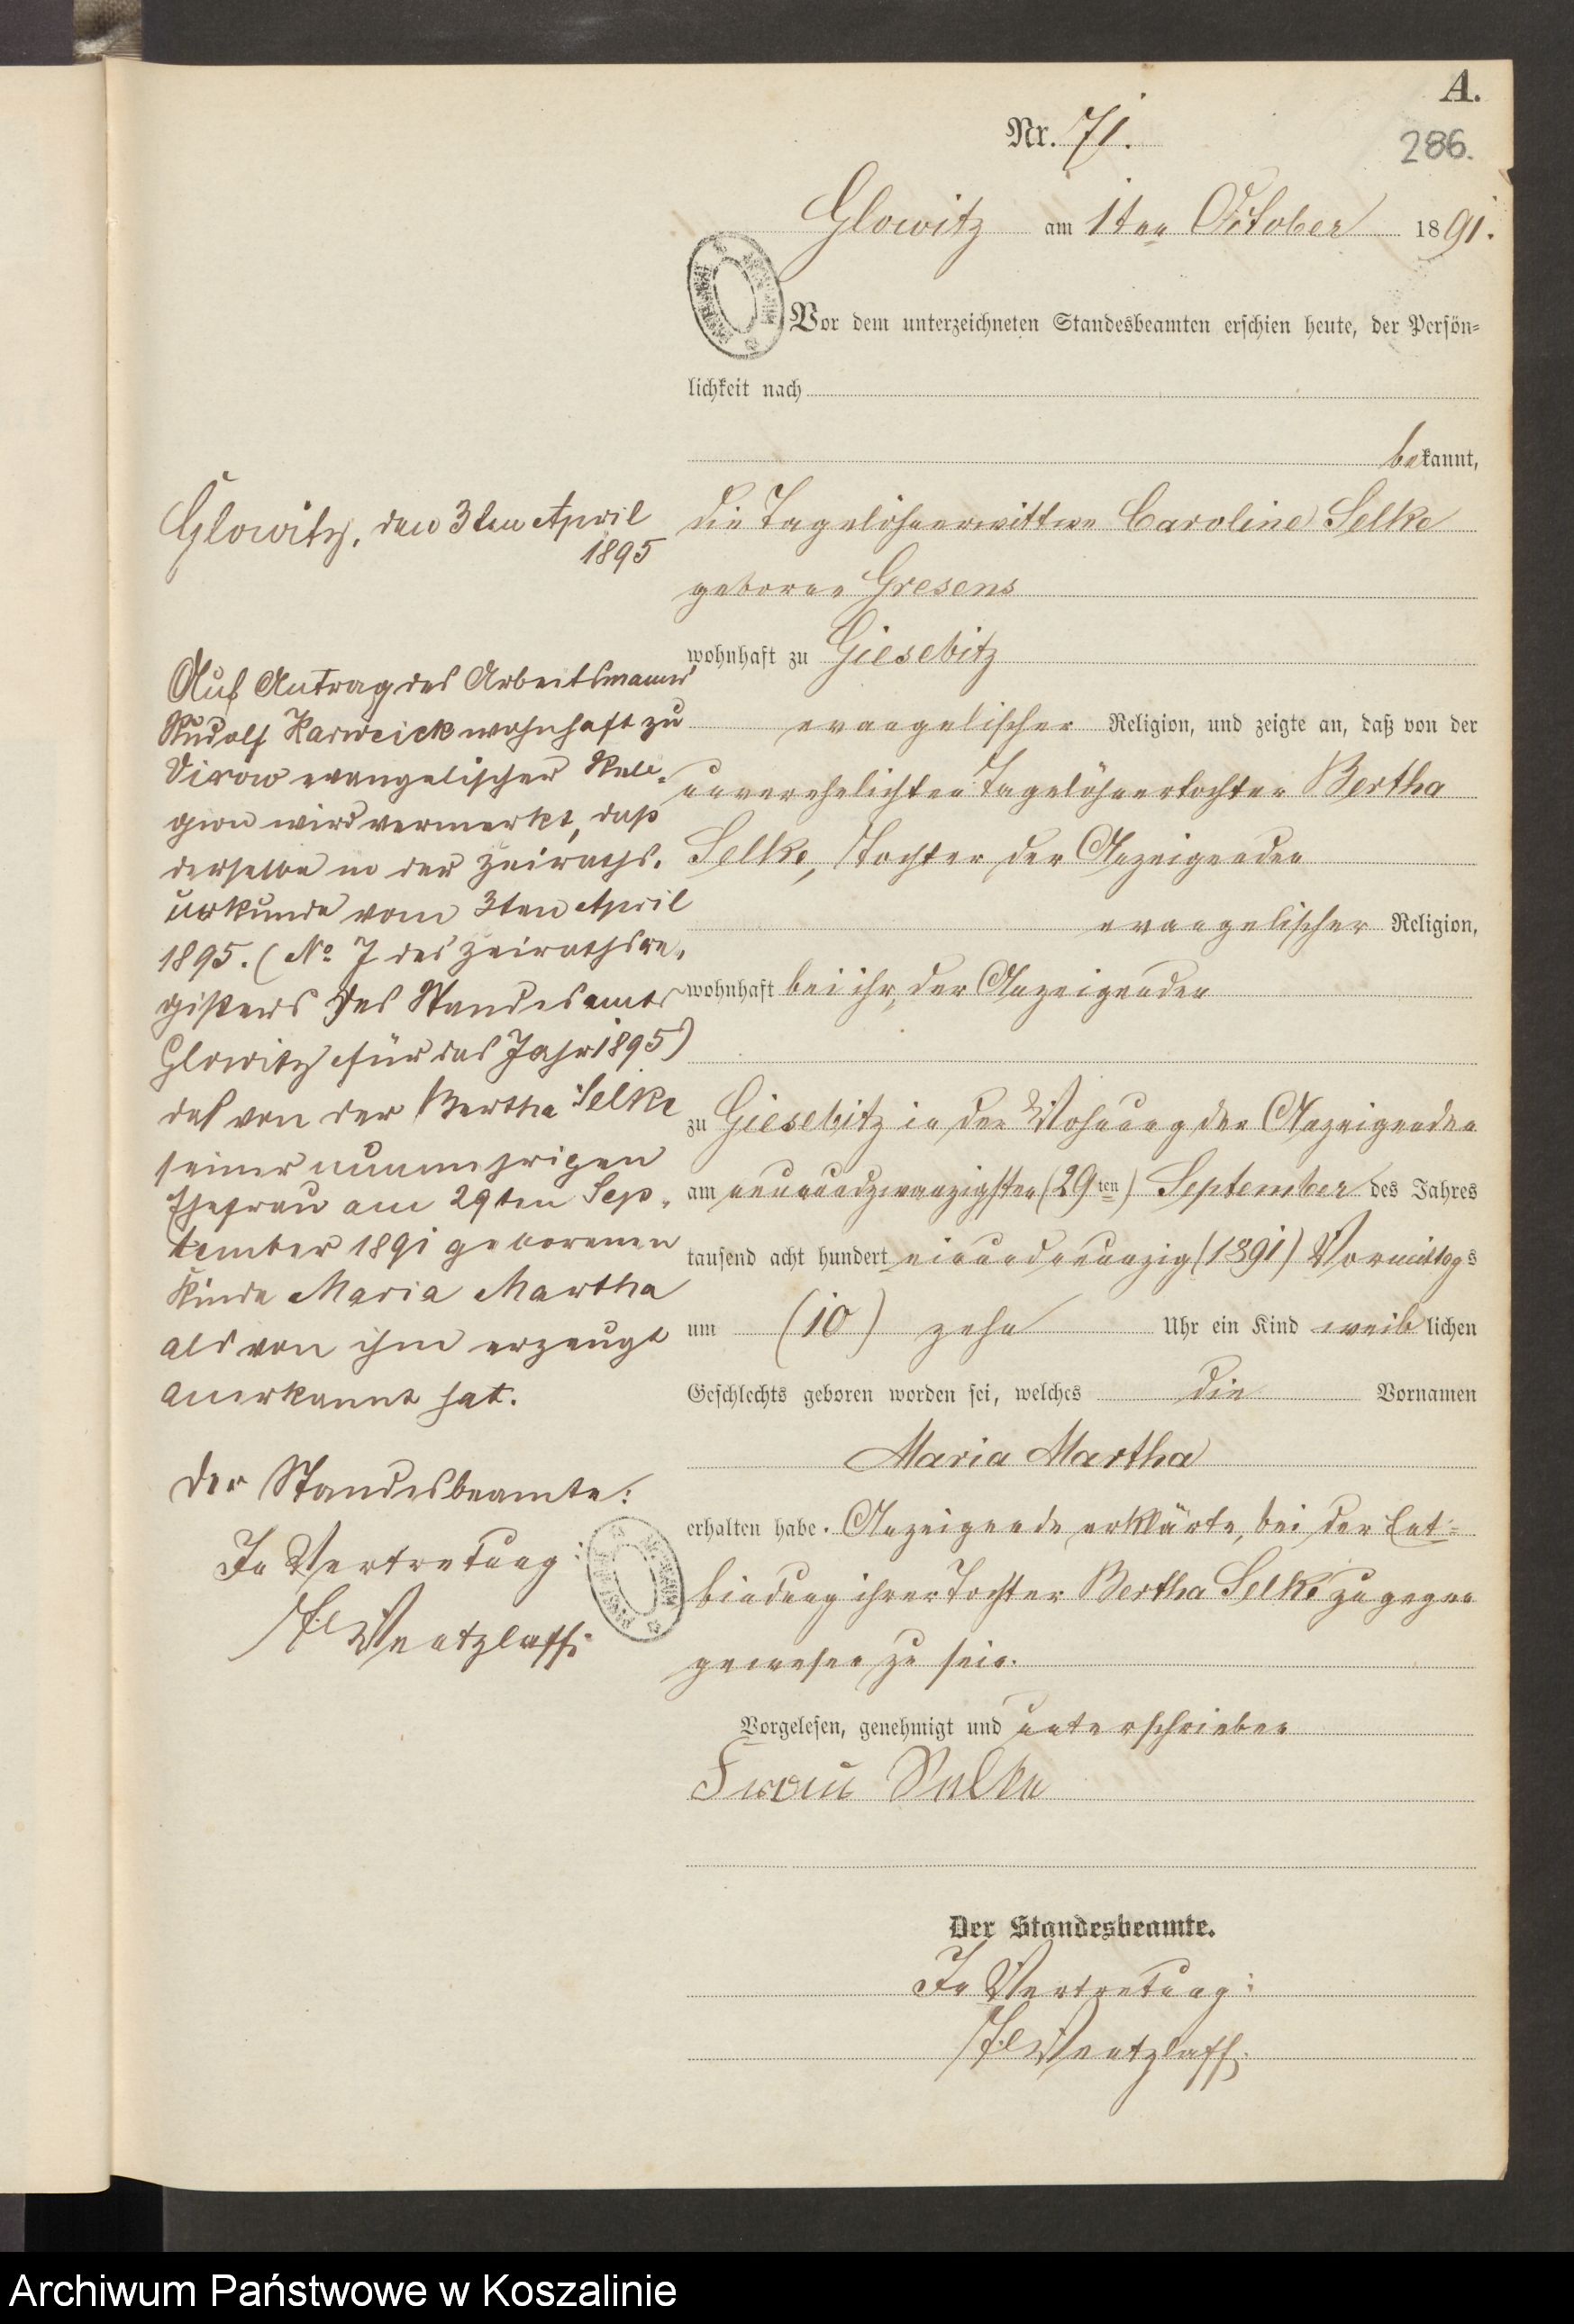 A.
Nr. 71.
286.
Glowitz am 1ten October 1891.
Vor dem unterzeichneten Standesbeamten erschien heute, der Persön=
lichkeit nach
bekannt,
die Tagelöhnerwittwe Caroline Selke
geborne Gresens
wohnhaft zu Giesebitz
evangelischer Religion, und zeigte an, daß von der
unverehelichten Tagelöhnertochter Bertha
Selke, Tochter der Anzeigenden
evangelischer Religion,
wohnhaft bei ihr, der Anzeigenden
zu Giesebitz in der Wohnung der Anzeigenden
am neunundzwanzigsten (29ten) September des Jahres
tausend acht hundert einundneunzig (1891) Vormittags
um (10) zehn Uhr ein Kind weiblichen
Geschlechts geboren worden sei, welches die Vornamen
Maria Martha
erhalten habe. Anzeigende erklärte, bei der Ent=
bindung ihrer Tochter Bertha Selke zugegen
gewesen zu sein.
Vorgelesen, genehmigt und unterschrieben
Frau Selke
Der Standesbeamte.
In Vertretung:
Wentzlaff.
Glowitz, den 3ten April
1895
Auf Antrag des Arbeitsmanns
Rudolf Karweick wohnhaft zu
evangelischer Reli-
gion wird vermerkt, daß
derselbe in der Heiraths-
urkunde vom 3ten April
1895. (No 7 des Heirathsre-
gisters des Standesamts
Glowitz für das Jahr 1895)
das von der Bertha Selke
seiner nunmehrigen
Ehefrau am 29ten Sep-
tember 1891 geborenen
Kinde Maria Martha
als von ihm erzeugt
anerkannt hat.
Der Standesbeamte:
In Vertretung:
Wentzlaff.
Archiwum Państwowe w Koszalinie